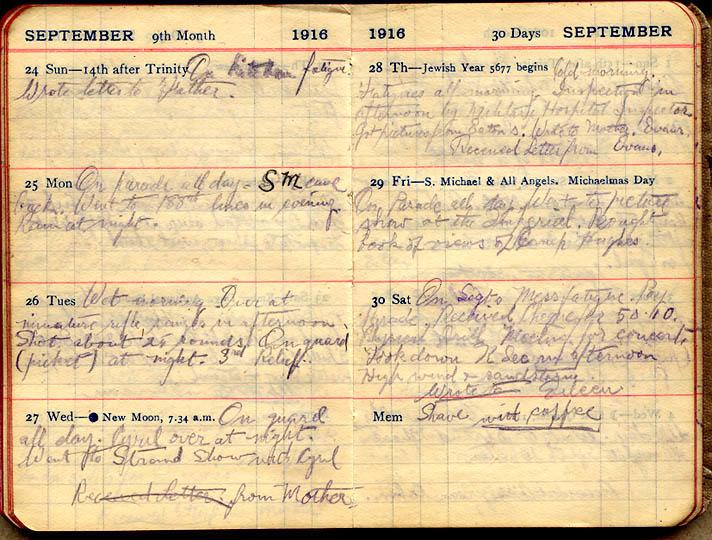 SEPTEMBER 9th Month 1916
24 Sun—14th after Trinity On Kitchen fatigue.
Wrote letter to Father.
25 Mon On parade all day - SM came
back. Went to 188th lines in evening
Rain at night.
26 Tues Wet morning. Over at
miniature rifle ranges in afternoon
Shot about 25 rounds. On guard
(picket) at night. 3rd Relief.
27 Wed—● New Moon, 7.34 a.m. On guard
all day. Cyril over at night.
Went to Strand Show with Cyril
Received Letter from Mother
1916 30 Days SEPTEMBER
28 Th—Jewish Year 5677 begins Cold morning.
Fatigues all morning Inspection in
afternoon by Hospital Inspector.
Got pictures from Eaton's. Wrote to Mother. Evans,
Received Letter from Evans.
29 Fri—S. Michael & All Angels. Michaelmas Day
On Parade all day. Went to picture
show at the Imperial. Bought
book of views of Camp Hughes.
30 Sat On Segts Mess fatigue. Pay
Parade Received Cheque for 50.10.
Physical Drill. Meeting for concert.
Took down in afternoon
High wind & sandstorm
Wrote to Eileen
Mem Shave with coffee